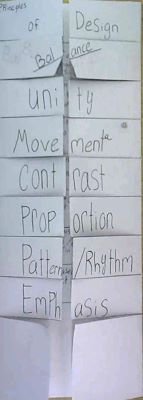 PRinciples
of Design
Balance
Unity
Movement
Contrast
Proportion
Pattern/Rhythm
Emphasis